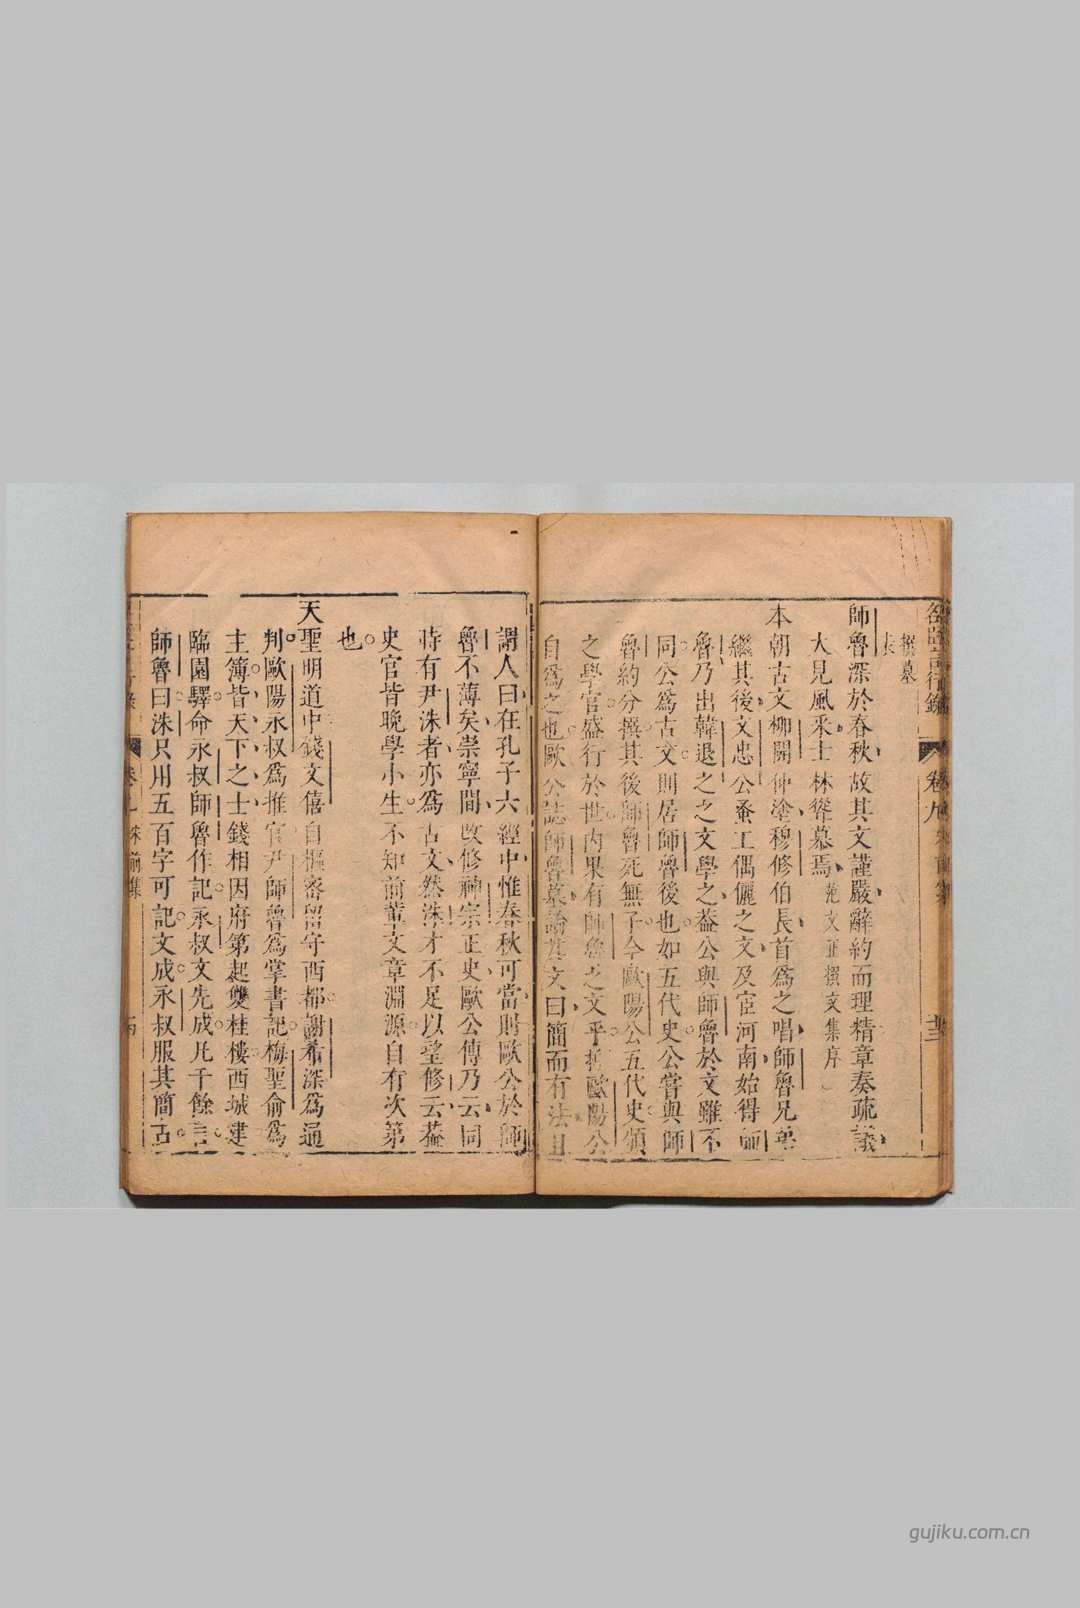 撰墓
表
師魯深於春秋故其文謹嚴辭約而理精章奏疏議
大見風采士林聳慕焉范文正撰文集序
本朝古文柳開仲塗穆修伯長首爲之唱師魯兄弟
繼其後文忠公蚤工偶儷之文及宦河南始得師
魯乃出韓退之之文學之蓋公與師魯於文雖不
同公爲古文則居師魯後也如五代史公嘗與師
魯約分撰其後師魯死無子今歐陽公五代史頒
之學官盛行於世內果有師魯之文乎抑歐陽公
自爲之也歐公誌師魯墓論其文曰簡而有法且
謂人曰在孔子六經中惟春秋可當則歐公於師
魯不薄矣崇寧間改修神宗正史歐公傳乃云同
時有尹洙者亦爲古文然洙才不足以望修云蓋
史官皆晚學小生不知前輩文章淵源自有次第
也
天聖明道中錢文僖自樞密留守西都謝希深爲通
判歐陽永叔爲推官尹師魯爲掌書記梅聖俞爲
主簿皆天下之士錢相因府第起雙桂樓西城建
臨園驛命永叔師魯作記永叔文先成凡千餘言
師魯曰洙只用五百字可記文成永叔服其簡古
gujiku.com.cn